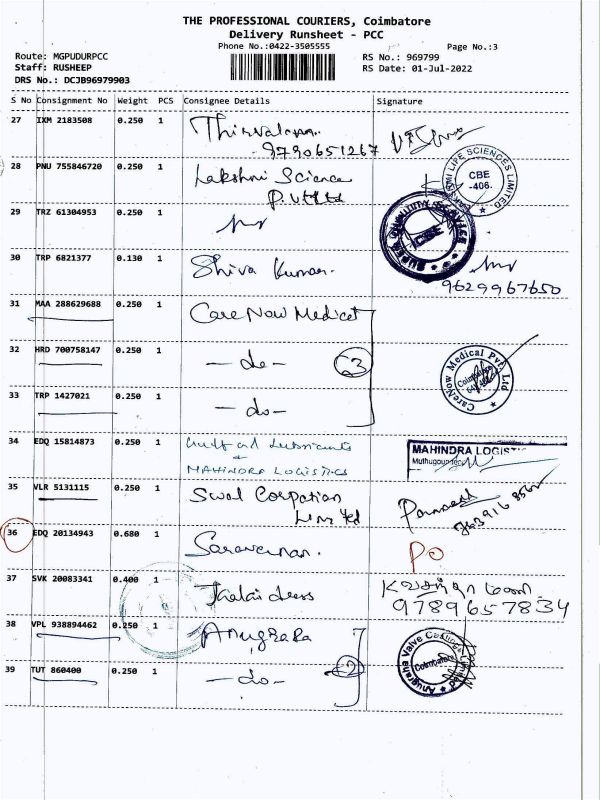 THE PROFESSIONAL COURIERS, Coimbatore
Delivery Runsheet - PCC
Phone No.:0422-3505555
Page No.:3
Route: MGPUDURPCC
Staff: RUSHEEP
DRS No.: DCJB96979903
RS No.: 969799
RS Date: 01-Jul-2022
S No Consignment No Weight PCS Consignee Details Signature
27 IXM 2183508 0.250 1
9790651267
28 PNU 755846720 0.250 1 Lakshmi Science
P. Ltd
LIFE SCIENCES LIMITED
CBE
-406.
29 TRZ 61304953 0.250 1
30 TRP 6821377 0.130 1 Shiva Kumar.
9629967650
31 MAA 288629688 0.250 1 CareNow Medical
32 HRD 700758147 0.250 1 -do- 3
CareNow Medical Pvt. Ltd
Coimbatore
33 TRP 1427021 0.250 1 -do-
34 EDQ 15814873 0.250 1 Gulf oil Lubricants
MAHINDRA LOGISTICS
MAHINDRA LOGISTI
35 VLR 5131115 0.250 1 Swal Corpation
Limited
36 EDQ 20134943 0.680 1 Saravanan.
PO
37 SVK 20083341 0.400 1
9789657834
38 VPL 938894462 0.250 1 Anugraha
39 TUT 860400 0.250 1 -do- 2
Anugraha Valve Castings
Coimbatore